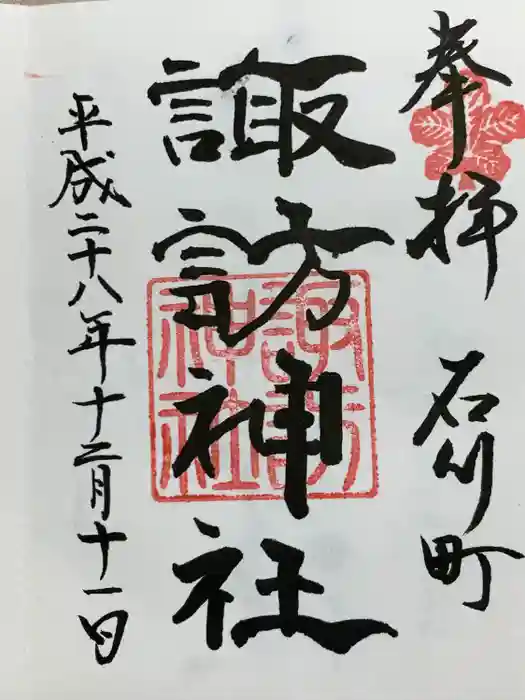 奉拝 石川町
諏訪神社
諏訪
神社
平成二十八年十二月十一日